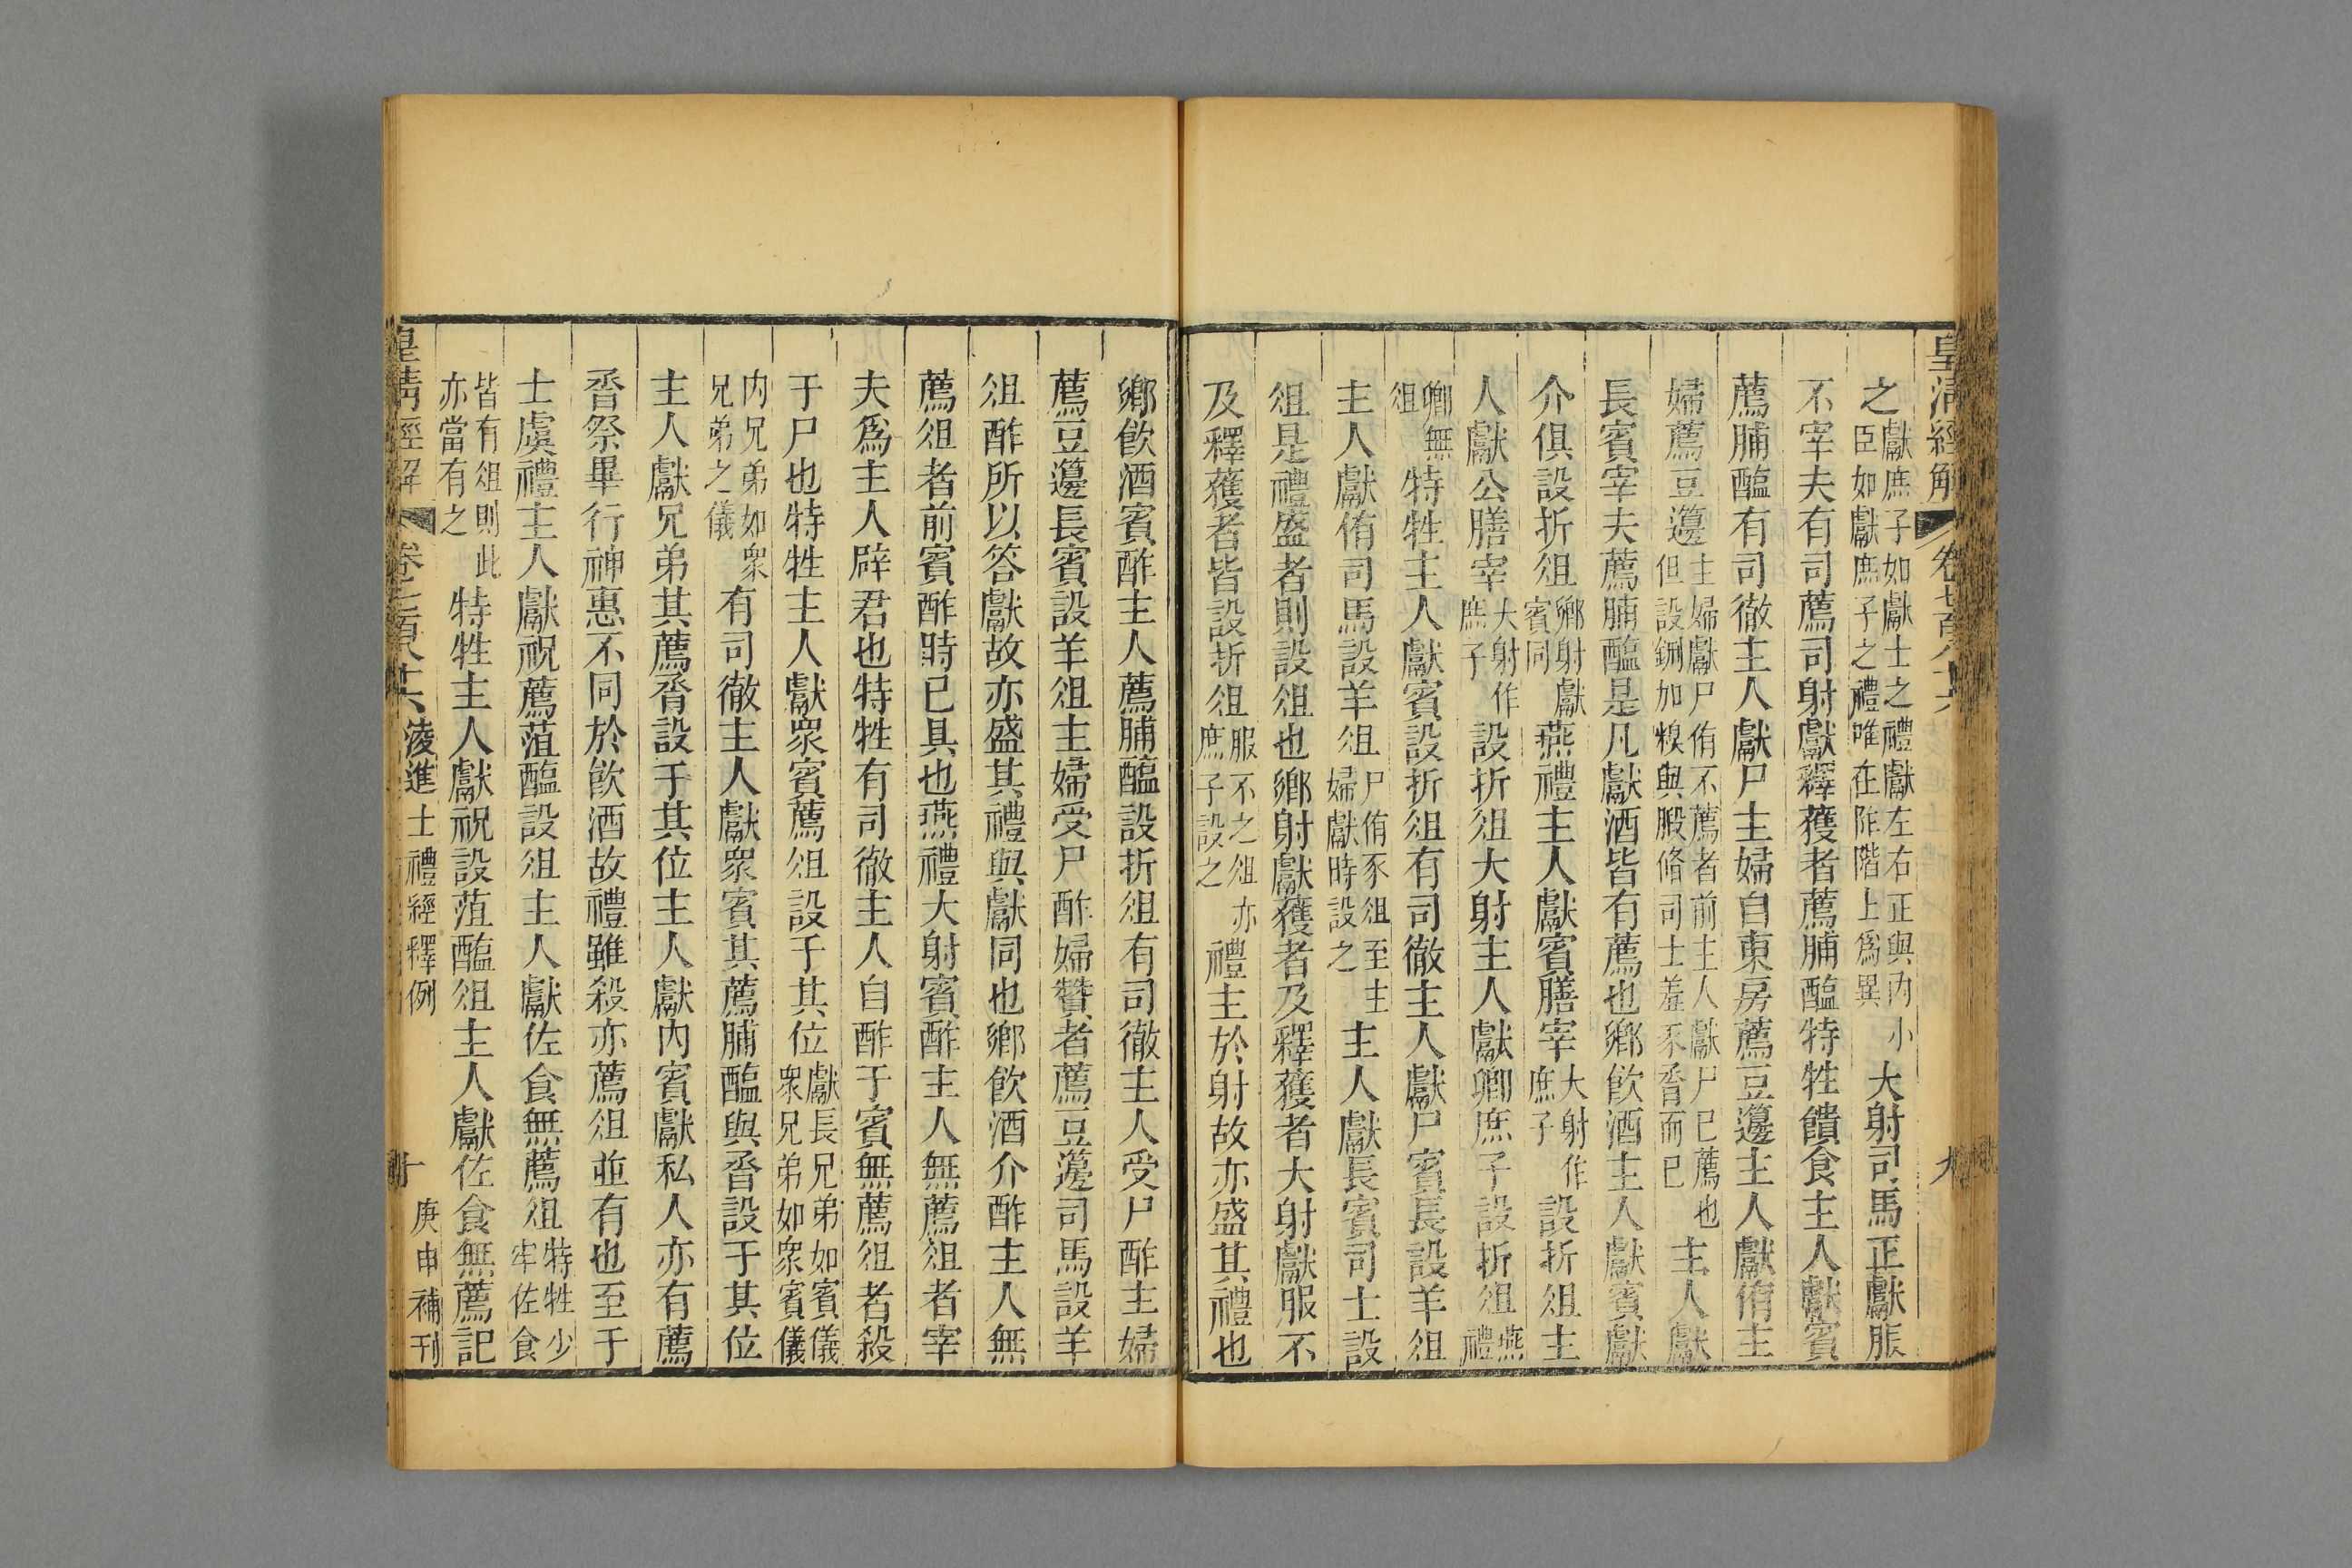 皇清經解 卷七百八十六 九
之獻庶子如獻士之禮獻左右正與內小臣如獻庶子之禮唯在阼階上爲異大射司馬正獻服
不宰夫有司薦司射獻釋獲者薦脯醢特牲饋食主人獻賓
薦脯醢有司徹主人獻尸主婦自東房薦豆籩主人獻侑主
婦薦豆籩主婦獻尸侑不薦者前主人獻尸已薦也但設鉶加糗與腶脩司士羞豕脀而已主人獻
長賓宰夫薦脯醢是凡獻酒皆有薦也鄉飲酒主人獻賓獻
介俱設折俎鄉射獻賓同燕禮主人獻賓膳宰大射作庶子設折俎主
人獻公膳宰大射作庶子設折俎大射主人獻卿庶子設折俎燕禮
卿無俎特牲主人獻賓設折俎有司徹主人獻尸賓長設羊俎
主人獻侑司馬設羊俎尸侑豕俎至主婦獻時設之主人獻長賓司士設
俎是禮盛者則設俎也鄉射獻獲者及釋獲者大射獻服不
及釋獲者皆設折俎服不之俎亦庶子設之禮主於射故亦盛其禮也
鄉飲酒賓酢主人薦脯醢設折俎有司徹主人受尸酢主婦
薦豆籩長賓設羊俎主婦受尸酢婦贊者薦豆籩司馬設羊
俎酢所以答獻故亦盛其禮與獻同也鄉飲酒介酢主人無
薦俎者前賓酢時已具也燕禮大射賓酢主人無薦俎者宰
夫爲主人辟君也特牲有司徹主人自酢于賓無薦俎者殺
于尸也特牲主人獻眾賓薦俎設于其位獻長兄弟如賓儀眾兄弟如眾賓儀
內兄弟如眾兄弟之儀有司徹主人獻眾賓其薦脯醢與脀設于其位
主人獻兄弟其薦脀設于其位主人獻內賓獻私人亦有薦
脀祭畢行神惠不同於飲酒故禮雖殺亦薦俎並有也至于
士虞禮主人獻祝薦菹醢設俎主人獻佐食無薦俎特牲少牢佐食
皆有俎則此亦當有之特牲主人獻祝設菹醢俎主人獻佐食無薦記
皇清經解 卷七百八十六 凌進士禮經釋例 十 庚申補刊